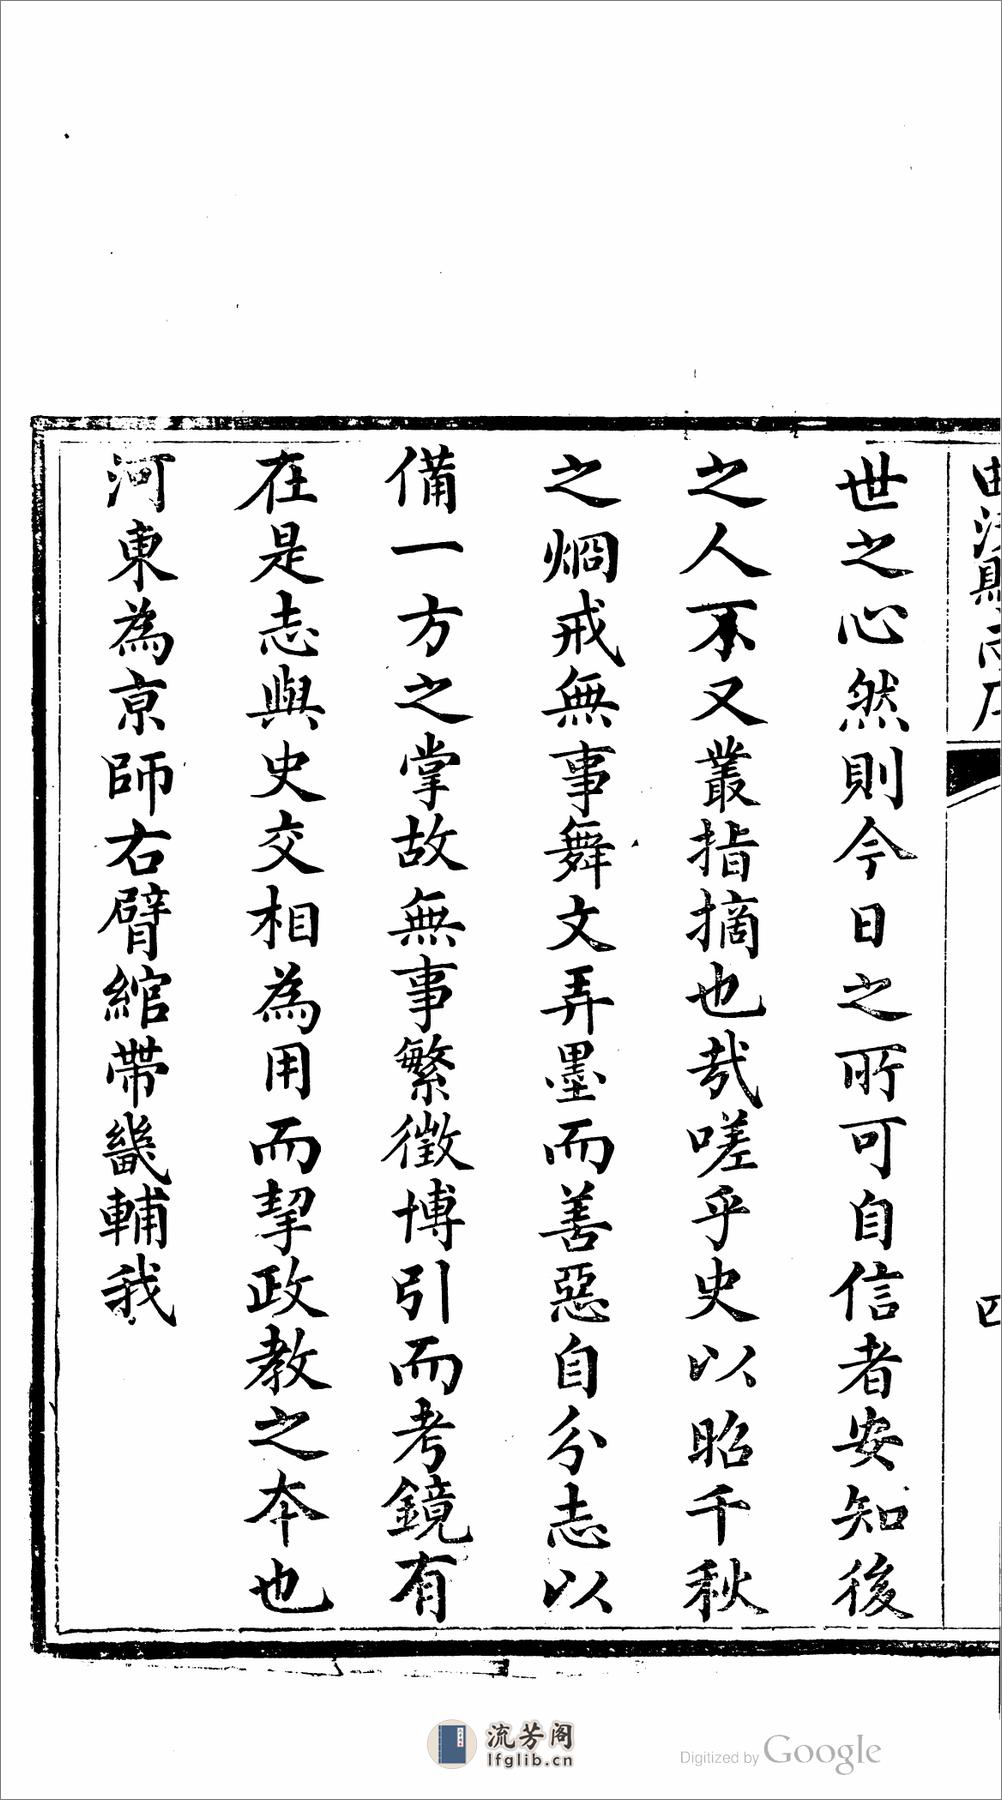 世之心然則今日之所可自信者安知後
之人不又叢指摘也哉嗟乎史以昭千秋
之烱戒無事舞文弄墨而善惡自分志以
備一方之掌故無事繁徵博引而考鏡有
在是志與史交相為用而挈政教之本也
河東為京師右臂綰帶畿輔我
四
流芳阁
lfglib.cn
Digitized by Google